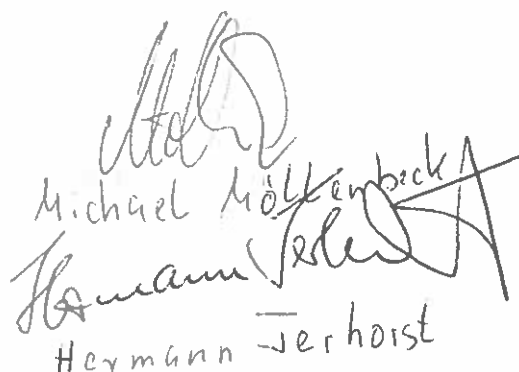 Michael Möllenbeck
Hermann Terhorst
Hermann Terhorst